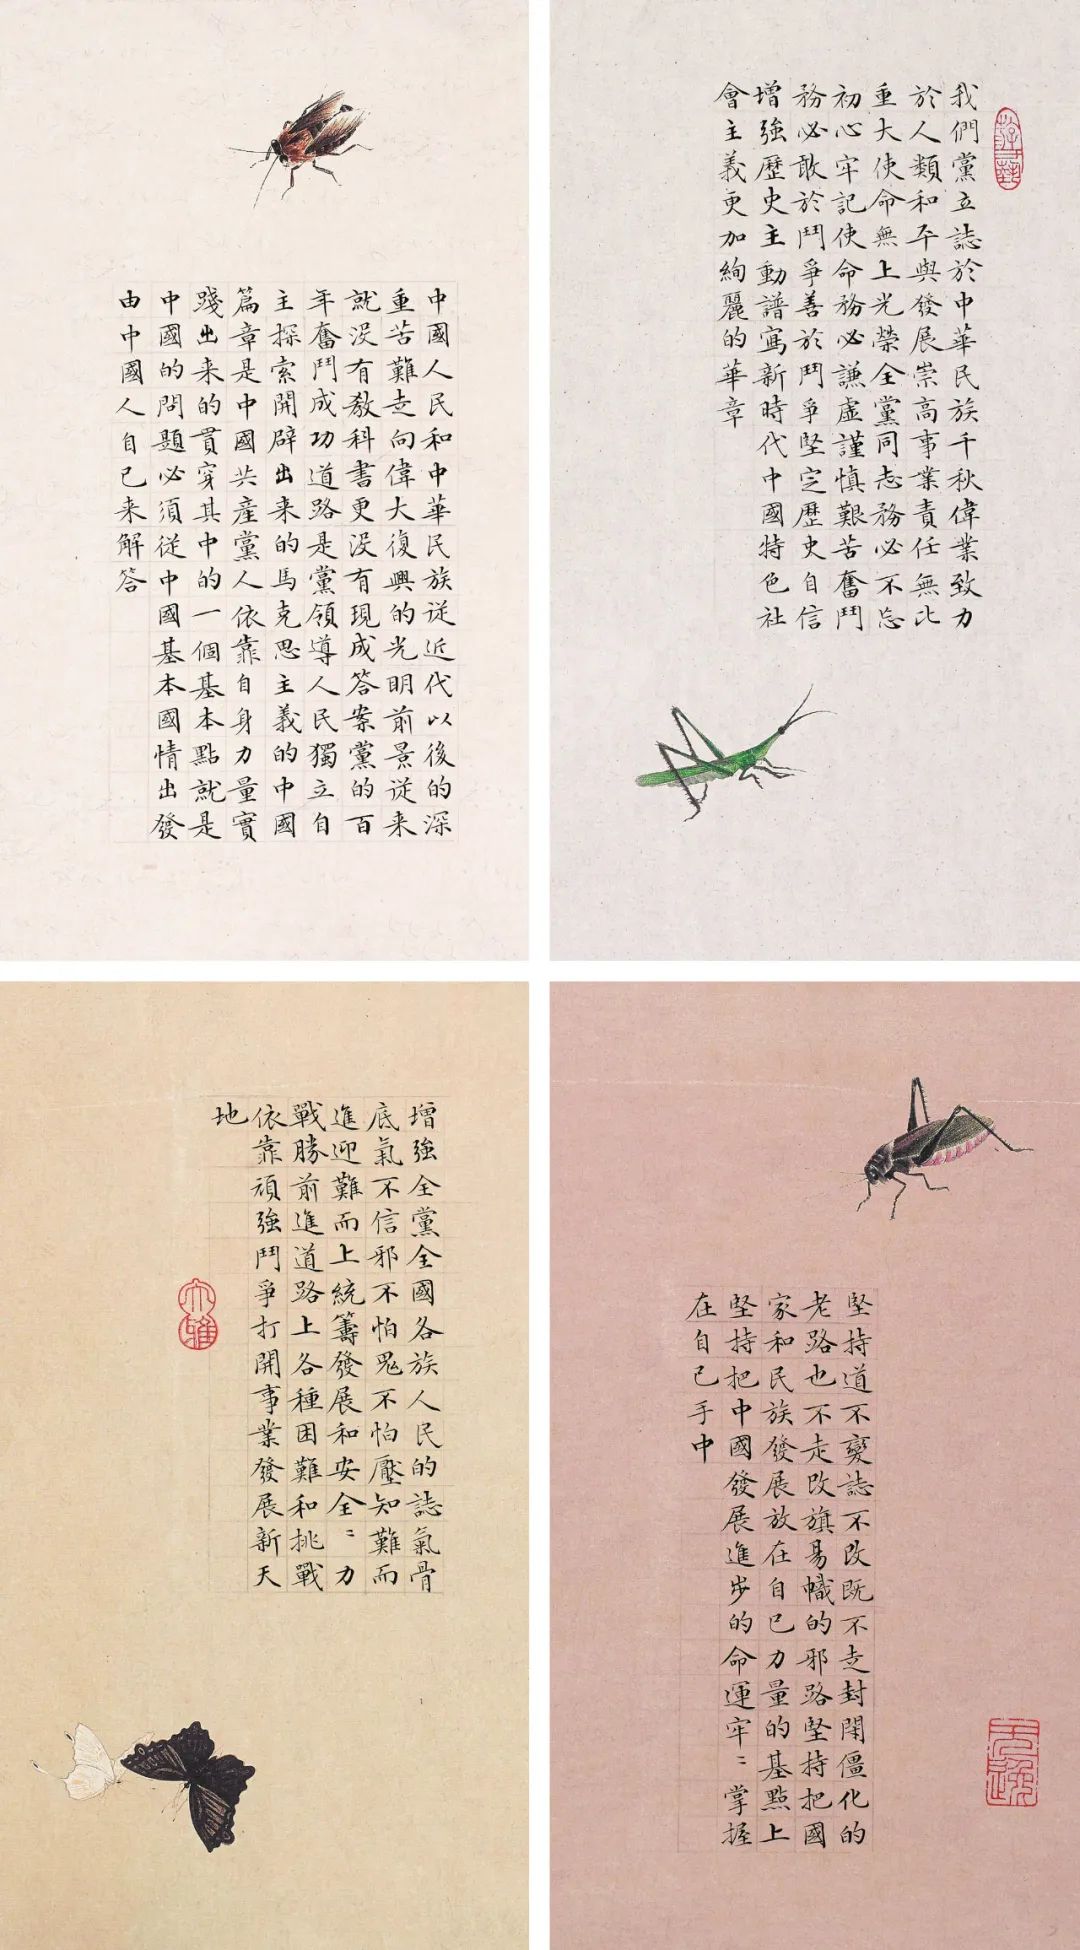 我們黨立誌於中華民族千秋偉業致力
於人類和平與發展崇高事業責任無比
重大使命無上光榮全黨同志務必不忘
初心牢記使命務必謙虛謹慎艱苦奮鬥
務必敢於鬥爭善於鬥爭堅定歷史自信
增強歷史主動譜寫新時代中國特色社
會主義更加絢麗的華章
中國人民和中華民族従近代以後的深
重苦難走向偉大復興的光明前景従来
就没有教科書更没有現成答案黨的百
年奮鬥成功道路是黨領導人民獨立自
主探索開辟出来的馬克思主義的中國
篇章是中國共產黨人依靠自身力量實
踐出来的貫穿其中的一個基本點就是
中國的問題必須従中國基本國情出發
由中國人自己来解答
堅持道不變誌不改既不走封閉僵化的
老路也不走改旗易幟的邪路堅持把國
家和民族發展放在自己力量的基點上
堅持把中國發展進步的命運牢〻掌握
在自己手中
增強全黨全國各族人民的誌氣骨
底氣不信邪不怕鬼不怕壓知難而
進迎難而上統籌發展和安全〻力
戰勝前進道路上各種困難和挑戰
依靠頑強鬥爭打開事業發展新天
地
大雅